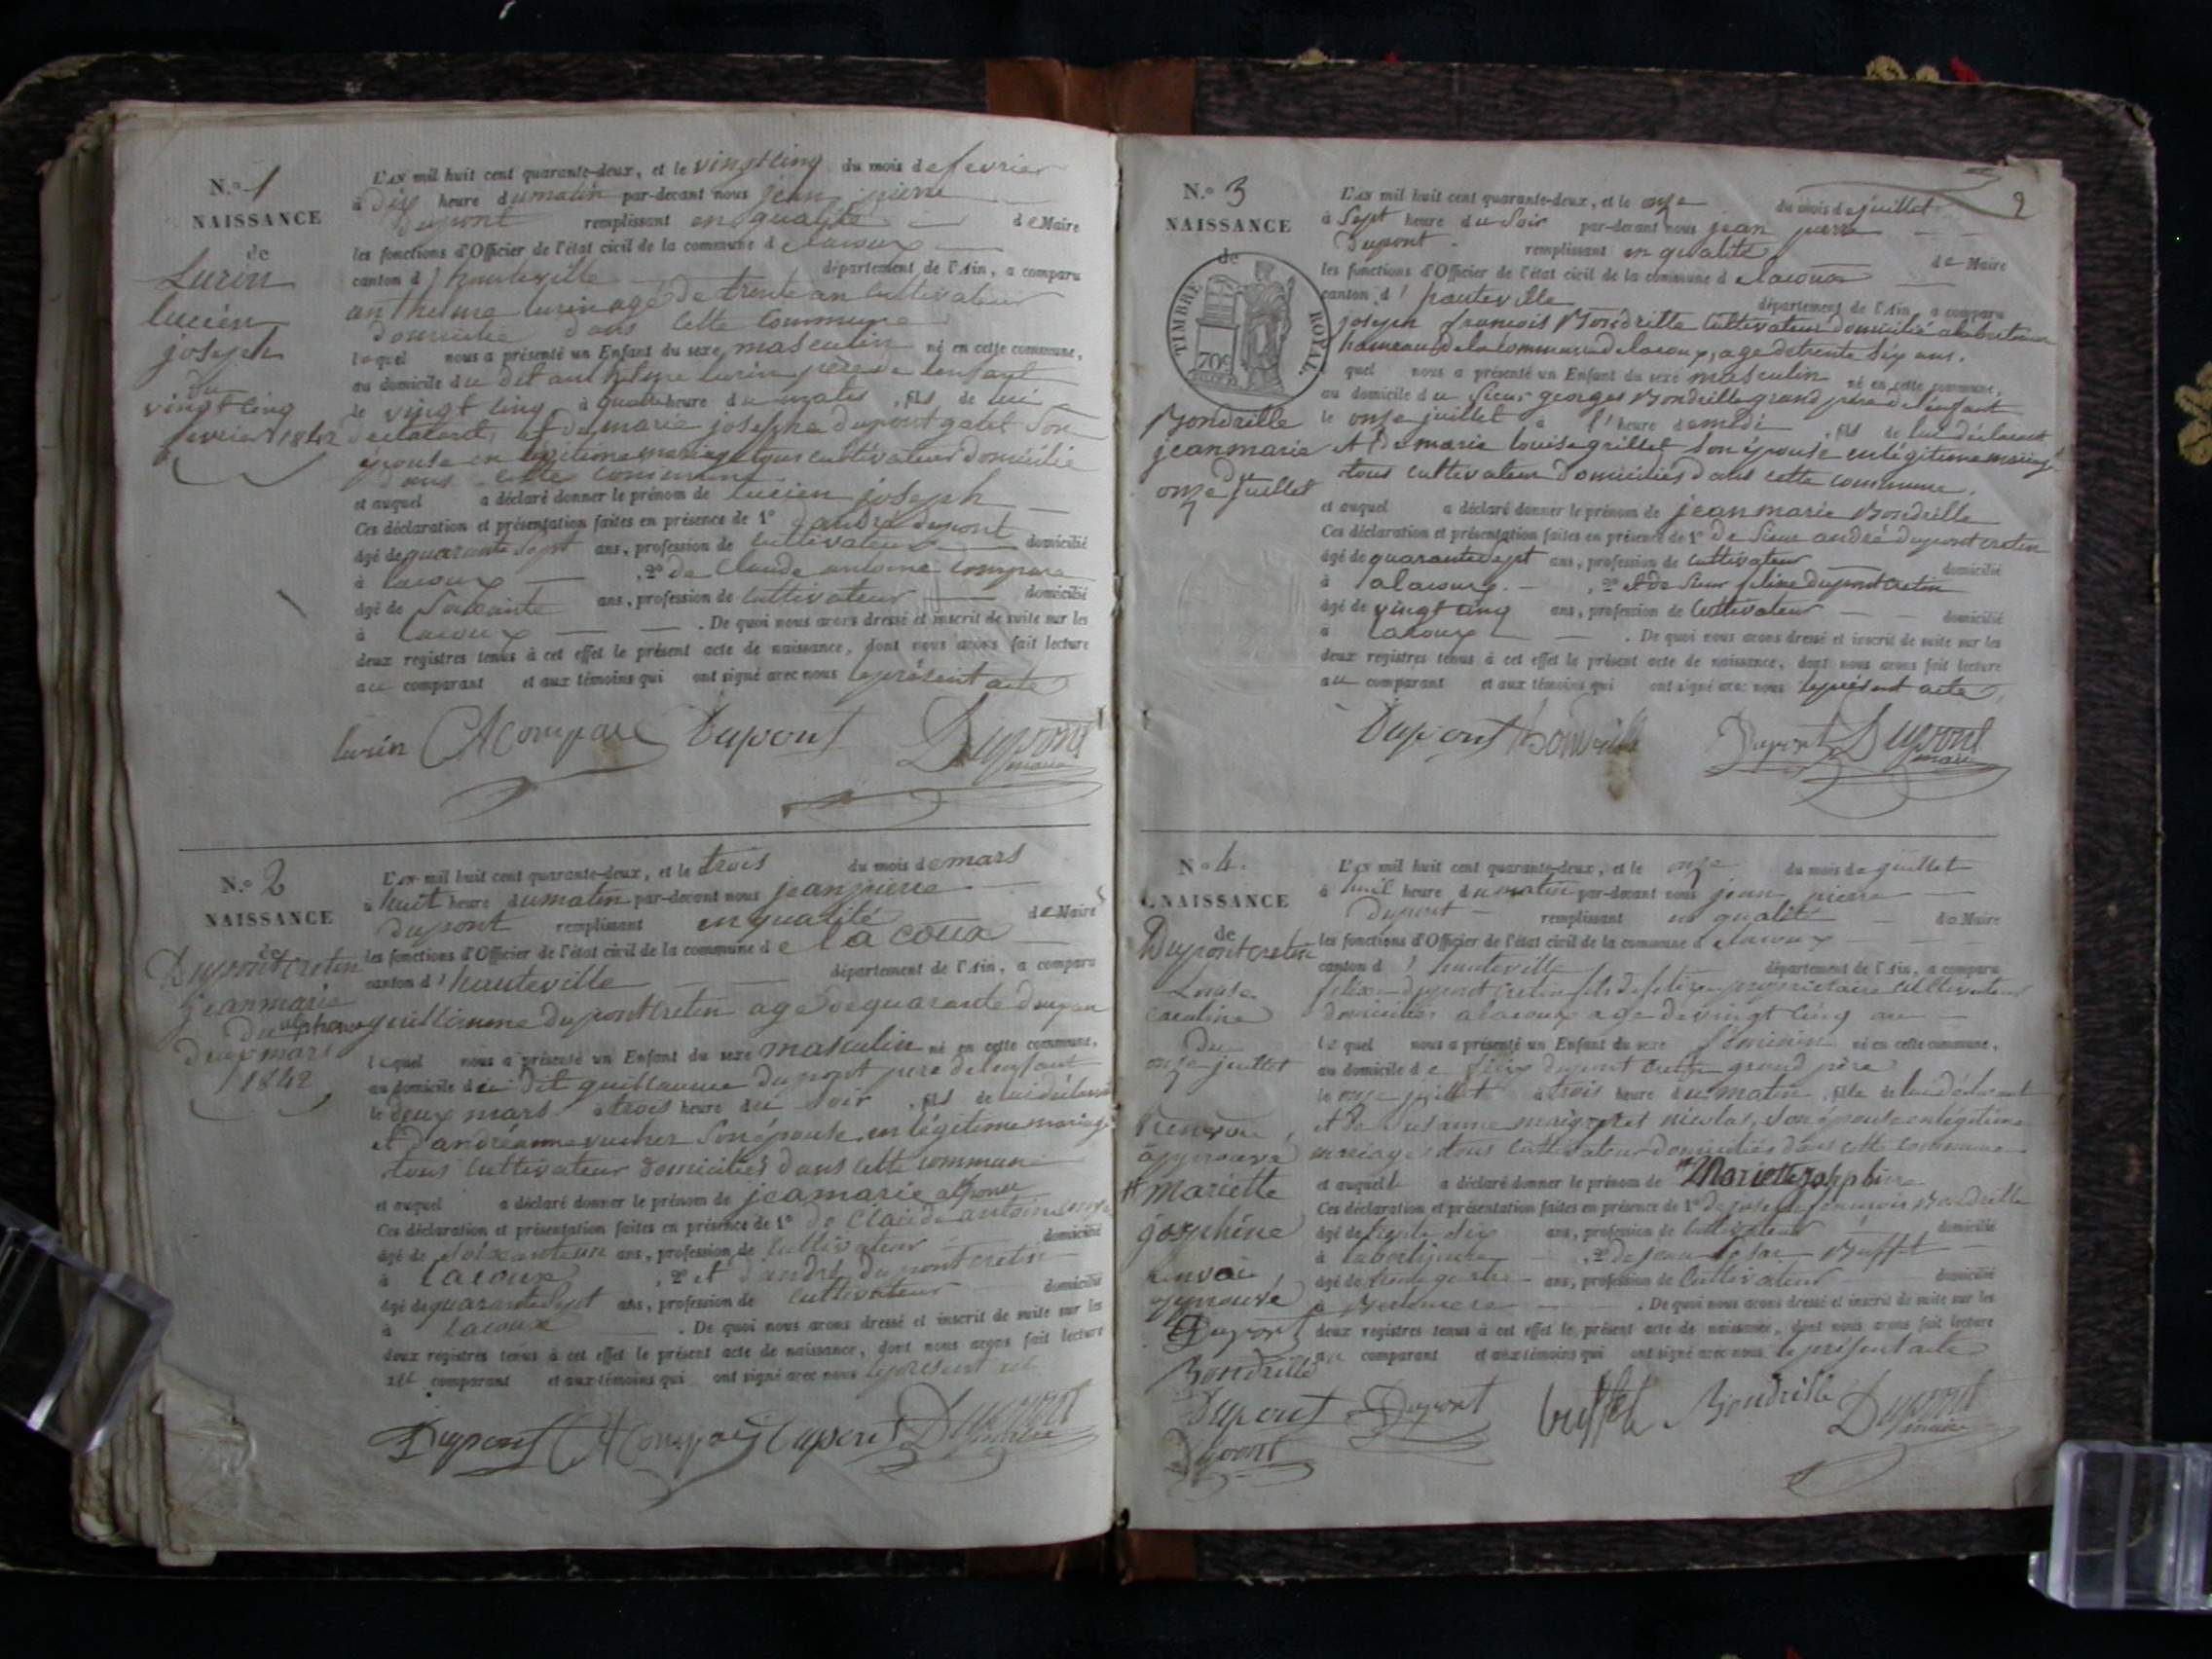 N.o 1
NAISSANCE
de
Lurin
lucien
joseph
du
vingt cinq
fevrier 1842
L'AN mil huit cent quarante-deux, et le vingt cinq du mois de fevrier
à dix heure du matin par-devant nous jean pierre
dupont remplissant en qualité de Maire
les fonctions d'Officier de l'état civil de la commune de lacoux
canton d' hauteville département de l'Ain, a comparu
anthelme lurin agé de trente an cultivateur
domicilié dans cette commune
lequel nous a présenté un Enfant du sexe masculin né en cette commune,
au domicile du dit anthelme lurin père de lenfant
le vingt cinq à quatre heure du matin, fils de lui
déclarant, et de marie josephe dupont gatet son
épouse en légitime mariage tous cultivateur domicilié
dans cette commune
et auquel a déclaré donner le prénom de lucien joseph
Ces déclaration et présentation faites en présence de 1o d'andré dupont
âgé de quarante sept ans, profession de cultivateur domicilié
à lacoux, 2o de Claude antoine compare
âgé de soixante ans, profession de cultivateur domicilié
à lacoux. De quoi nous avons dressé et inscrit de suite sur les
deux registres tenus à cet effet le présent acte de naissance, dont nous avons fait lecture
au comparant et aux témoins qui ont signé avec nous le présent acte
lurin CA Compare Dupont Dupont
maire
N.o 2
NAISSANCE
de
Dupont cretin
jean marie
alphonse
du
deux mars
1842
L'AN mil huit cent quarante-deux, et le trois du mois de mars
à huit heure du matin par-devant nous jean pierre
dupont remplissant en qualité de Maire
les fonctions d'Officier de l'état civil de la commune de lacoux
canton d' hauteville département de l'Ain, a comparu
guillaume dupont cretin agé de quarante deux an
lequel nous a présenté un Enfant du sexe masculin né en cette commune,
au domicile du dit guillaume dupont pere de lenfant
le deux mars à trois heure du soir, fils de lui déclarant
et d'andréanne vucher son épouse en légitime mariage
tous cultivateur domiciliés dans cette commune
et auquel a déclaré donner le prénom de jeamarie alphonse
Ces déclaration et présentation faites en présence de 1o de Claude antoine
âgé de soixante un ans, profession de cultivateur domicilié
à lacoux, 2o et d'andré dupont cretin
âgé de quarante sept ans, profession de cultivateur domicilié
à lacoux. De quoi nous avons dressé et inscrit de suite sur les
deux registres tenus à cet effet le présent acte de naissance, dont nous avons fait lecture
au comparant et aux témoins qui ont signé avec nous le présent
Dupont CA Compare Dupont Dupont
maire
2
N.o 3
NAISSANCE
de
TIMBRE ROYAL.
70c
Bondrille
jean marie
du
onze juillet
L'AN mil huit cent quarante-deux, et le onze du mois de juillet
à sept heure du soir par-devant nous jean pierre
dupont remplissant en qualité de Maire
les fonctions d'Officier de l'état civil de la commune de lacoux
canton d' hauteville département de l'Ain, a comparu
joseph francois Bondrille cultivateur domicilié
hameau de la commune de lacoux, agé de trente six ans.
quel nous a présenté un Enfant du sexe masculin né en cette commune,
au domicile du sieur georges Bondrille grand père de l'enfant
le onze juillet à l' heure de midi, fils de lui déclarant
et de marie louise grillet son épouse en légitime mariage
tous cultivateur domiciliés dans cette commune.
et auquel a déclaré donner le prénom de jean marie Bondrille
Ces déclaration et présentation faites en présence de 1o de sieur andré dupont cretin
âgé de quarante sept ans, profession de cultivateur domicilié
à alacoux, 2o et de sieur felixe dupont cretin
âgé de vingt cinq ans, profession de cultivateur domicilié
à lacoux. De quoi nous avons dressé et inscrit de suite sur les
deux registres tenus à cet effet le présent acte de naissance, dont nous avons fait lecture
au comparant et aux témoins qui ont signé avec nous le présent acte
Dupont Bondrille Dupont Dupont
maire
N.o 4.
NAISSANCE
de
Dupont cretin
Louise
caroline
du
onze juillet
Renvoi
approuvé
# mariette
josephine
renvoi
approuvé
Dupont
Bondrille
Dupont
Dupont
L'AN mil huit cent quarante-deux, et le onze du mois de juillet
à huit heure du matin par-devant nous jean pierre
dupont remplissant en qualité de Maire
les fonctions d'Officier de l'état civil de la commune de lacoux
canton d' hauteville département de l'Ain, a comparu
felix dupont cretin fils de felix propriétaire cultivateur
domicilié a lacoux age de vingt cinq an
lequel nous a présenté un Enfant du sexe féminin né en cette commune,
au domicile de felix dupont cretin grand père
le onze juillet à trois heure du matin, fille de lui déclarant
et de susanne margueret nicolas, son épouse en légitime
mariage, tous cultivateur domiciliés dans cette commune
et auquel a déclaré donner le prénom de # Mariette josephine
Ces déclaration et présentation faites en présence de 1o de joseph francois Bondrille
âgé de trente six ans, profession de cultivateur domicilié
à, 2o de jean Buffet
âgé de trente quatre ans, profession de cultivateur domicilié
à. De quoi nous avons dressé et inscrit de suite sur les
deux registres tenus à cet effet le présent acte de naissance, dont nous avons fait lecture
au comparant et aux témoins qui ont signé avec nous le présent acte
Dupont buffet Bondrille Dupont
maire